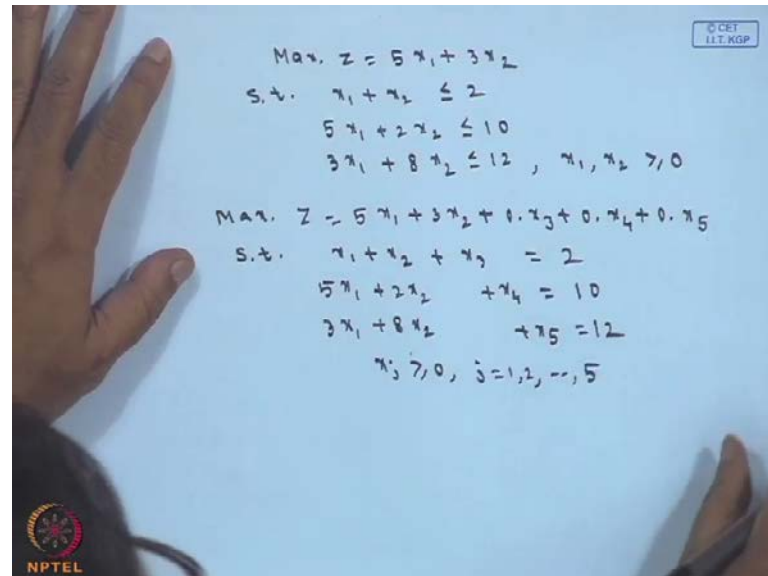 © CET
I.I.T. KGP
Max. Z = 5x₁ + 3x₂
S.t. x₁ + x₂ ≤ 2
5x₁ + 2x₂ ≤ 10
3x₁ + 8x₂ ≤ 12 , x₁, x₂ ≥ 0
Max. Z = 5x₁ + 3x₂ + 0.x₃ + 0.x₄ + 0.x₅
S.t. x₁ + x₂ + x₃ = 2
5x₁ + 2x₂ + x₄ = 10
3x₁ + 8x₂ + x₅ = 12
xⱼ ≥ 0, j = 1, 2, --, 5
NPTEL